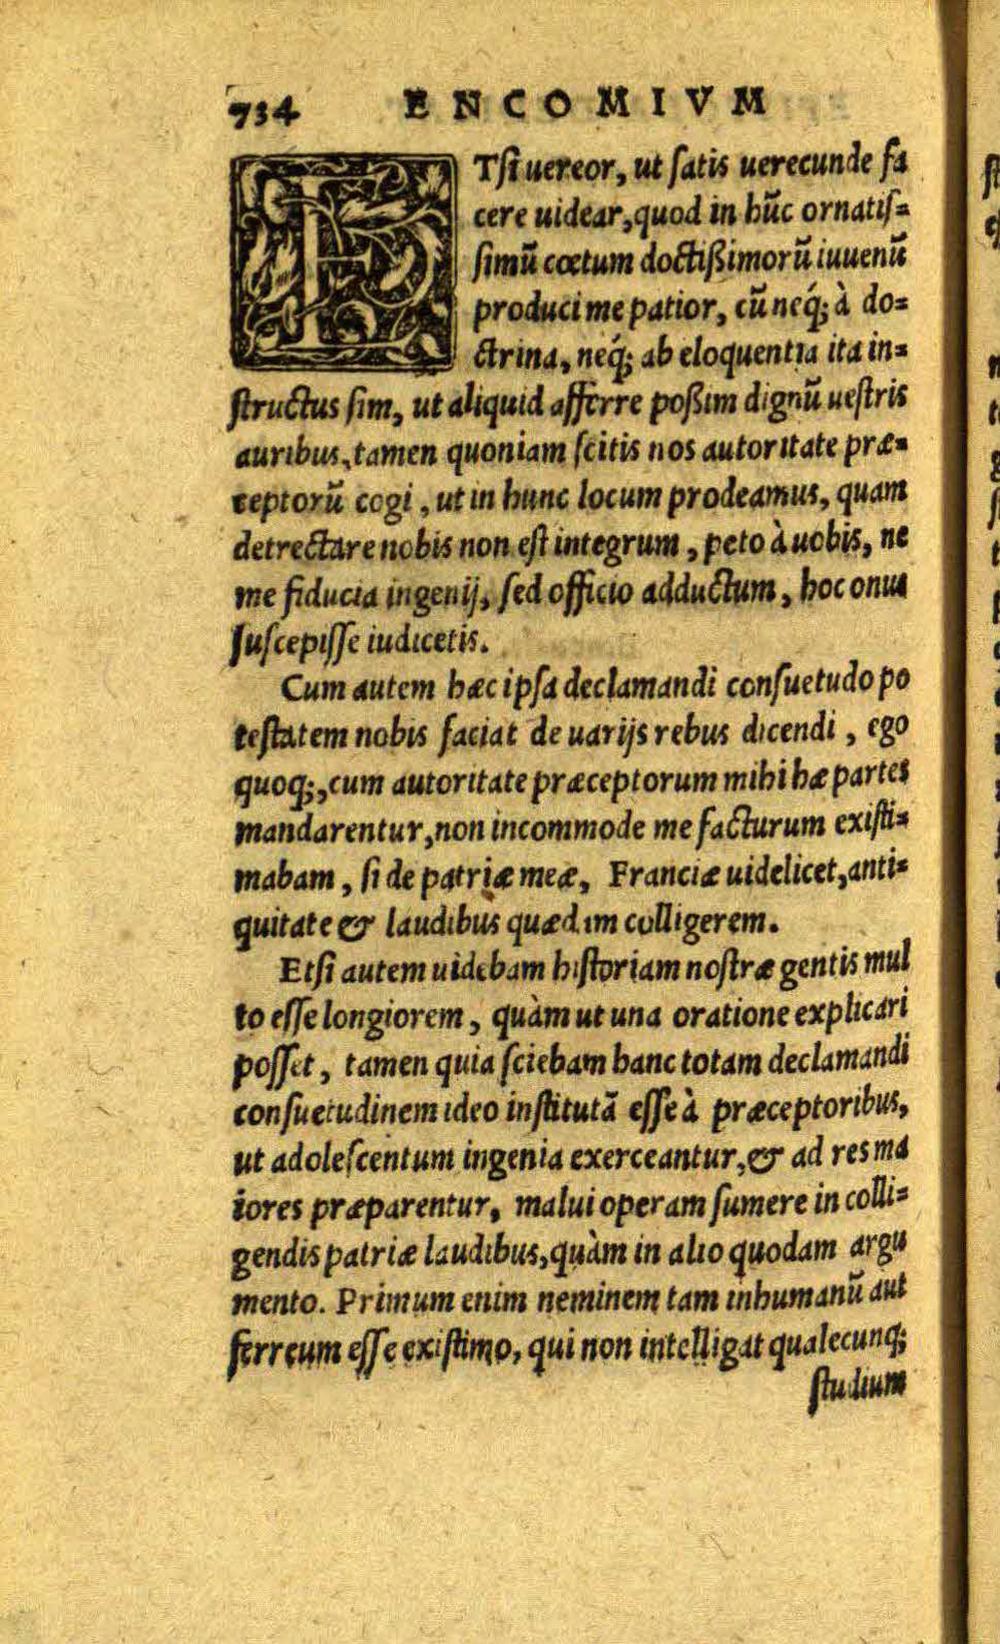 734 ENCOMIVM
ETſi uereor, ut ſatis uerecunde fa
cere uidear, quod in hūc ornatiſ=
ſimū cœtum doctißimorū iuuenū
produci me patior, cū neq́; à do=
ctrina, neq́; ab eloquentia ita in=
ſtructus ſim, ut aliquid afferre poßim dignū ueſtris
auribus, tamen quoniam ſcitis nos autoritate præ=
ceptorū cogi, ut in hunc locum prodeamus, quam
detrectare nobis non eſt integrum, peto à uobis, ne
me fiducia ingenij, ſed officio adductum, hoc onus
ſuſcepiſſe iudicetis.
Cum autem hæc ipſa declamandi conſuetudo po
teſtatem nobis faciat de uarijs rebus dicendi, ego
quoq;, cum autoritate præceptorum mihi hæ partes
mandarentur, non incommode me facturum exiſti=
mabam, ſi de patriæ meæ, Franciæ uidelicet, anti=
quitate & laudibus quædam colligerem.
Etſi autem uidebam hiſtoriam noſtræ gentis mul
to eſſe longiorem, quàm ut una oratione explicari
poſſet, tamen quia ſciebam hanc totam declamandi
conſuetudinem ideo inſtitutā eſſe à præceptoribus,
ut adoleſcentum ingenia exerceantur, & ad res ma
iores præparentur, malui operam ſumere in colli=
gendis patriæ laudibus, quàm in alio quodam argu
mento. Primum enim neminem tam inhumanū aut
ferreum eſſe exiſtimo, qui non intelligat qualecunq;
ſtudium